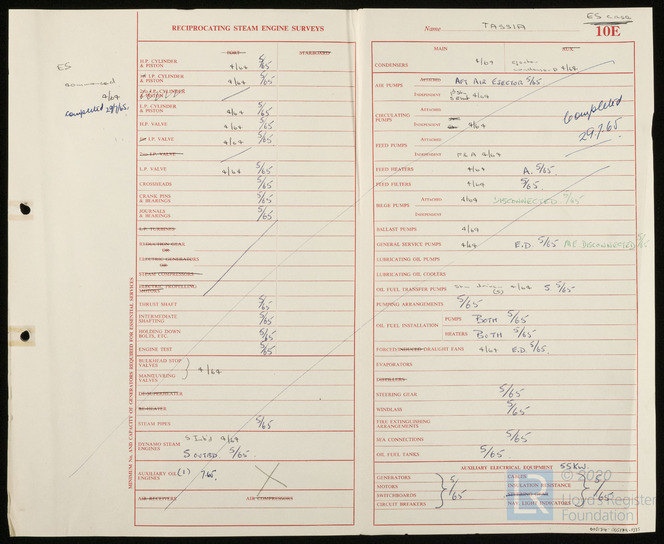 ES
commenced
4/64
Completed 29/7/65.
MINIMUM No. AND CAPACITY OF GENERATORS REQUIRED FOR ESSENTIAL SERVICES
RECIPROCATING STEAM ENGINE SURVEYS
PORT STARBOARD
H.P. CYLINDER & PISTON 4/64 5/65
1st I.P. CYLINDER & PISTON 4/64 5/65
2nd I.P. CYLINDER & PISTON
L.P. CYLINDER & PISTON 4/64 5/65
H.P. VALVE 4/64 5/65
1st I.P. VALVE 4/64 5/65
2nd I.P. VALVE
L.P. VALVE 4/64 5/65
CROSSHEADS 5/65
CRANK PINS & BEARINGS 5/65
JOURNALS & BEARINGS 5/65
L.P. TURBINES
REDUCTION GEAR
OR
ELECTRIC GENERATORS
OR
STEAM COMPRESSORS
ELECTRIC PROPELLING MOTORS
THRUST SHAFT 5/65
INTERMEDIATE SHAFTING 5/65
HOLDING DOWN BOLTS, ETC. 5/65
ENGINE TEST 5/65
BULKHEAD STOP VALVES
4/64
MANŒUVRING VALVES
DE-SUPERHEATER
RE-HEATER
STEAM PIPES 5/65
DYNAMO STEAM ENGINES 4/64
5/65.
AUXILIARY OIL ENGINES (1) 7/65.
AIR RECEIVERS AIR COMPRESSORS
ES Case
Name TASSIA 10E
MAIN AUX.
CONDENSERS 4/64 4/64
AIR PUMPS Attached AFT AIR EJECTOR 5/65
Independent 4/64
CIRCULATING PUMPS Attached
Independent 4/64
Completed
29.7.65.
FEED PUMPS Attached
Independent 4/64
FEED HEATERS 4/64 A. 5/65
FEED FILTERS 4/64 5/65.
BILGE PUMPS Attached 4/64 DISCONNECTED 5/65
Independent
BALLAST PUMPS 4/64
GENERAL SERVICE PUMPS 4/64 E.D. 5/65 M.E. DISCONNECTED 5/65
LUBRICATING OIL PUMPS
LUBRICATING OIL COOLERS
OIL FUEL TRANSFER PUMPS 4/64 S. 5/65.
PUMPING ARRANGEMENTS 5/65
OIL FUEL INSTALLATION PUMPS BOTH 5/65
HEATERS BOTH 5/65.
FORCED INDUCED DRAUGHT FANS 4/64 E.D. 5/65.
EVAPORATORS
DISTILLERS
STEERING GEAR 5/65
WINDLASS 5/65.
FIRE EXTINGUISHING ARRANGEMENTS
SEA CONNECTIONS 5/65
OIL FUEL TANKS 5/65.
AUXILIARY ELECTRICAL EQUIPMENT 55KW.
GENERATORS CABLES
MOTORS INSULATION RESISTANCE
SWITCHBOARDS 5/65 STEERING GEAR 5/65
CIRCUIT BREAKERS NAV. LIGHT INDICATORS
© 2020
LR
Lloyd's Register
Foundation